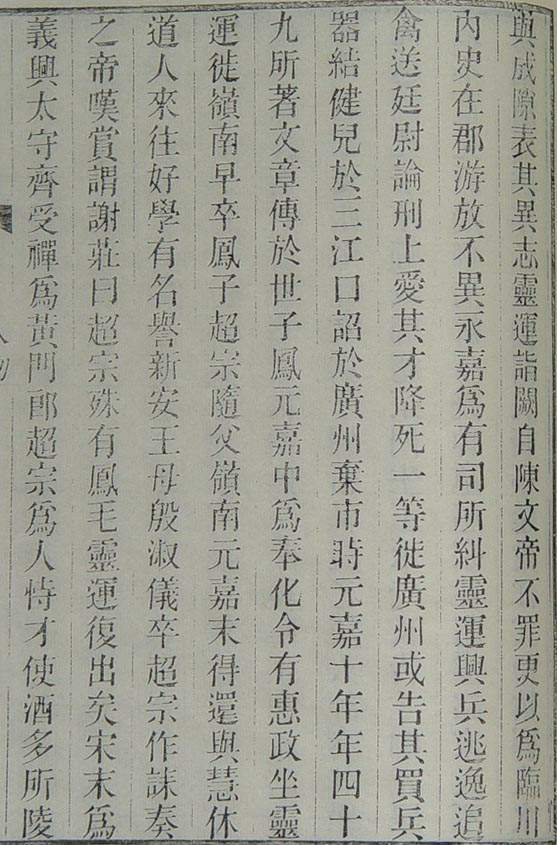 與成隙表其異志靈運詣闕自陳文帝不罪更以爲臨川
内史在郡游放不異永嘉爲有司所糾靈運興兵逃逸追
禽送廷尉論刑上愛其才降死一等徙廣州或告其買兵
器結健兒於三江口詔於廣州棄市時元嘉十年年四十
九所著文章傳於世子鳳元嘉中爲奉化令有惠政坐靈
運徙嶺南早卒鳳子超宗隨父嶺南元嘉末得還與慧休
道人來往好學有名譽新安王母殷淑儀卒超宗作誄奏
之帝嘆賞謂謝莊曰超宗殊有鳳毛靈運復出矣宋末爲
義興太守齊受禪爲黃門郎超宗爲人恃才使酒多所陵